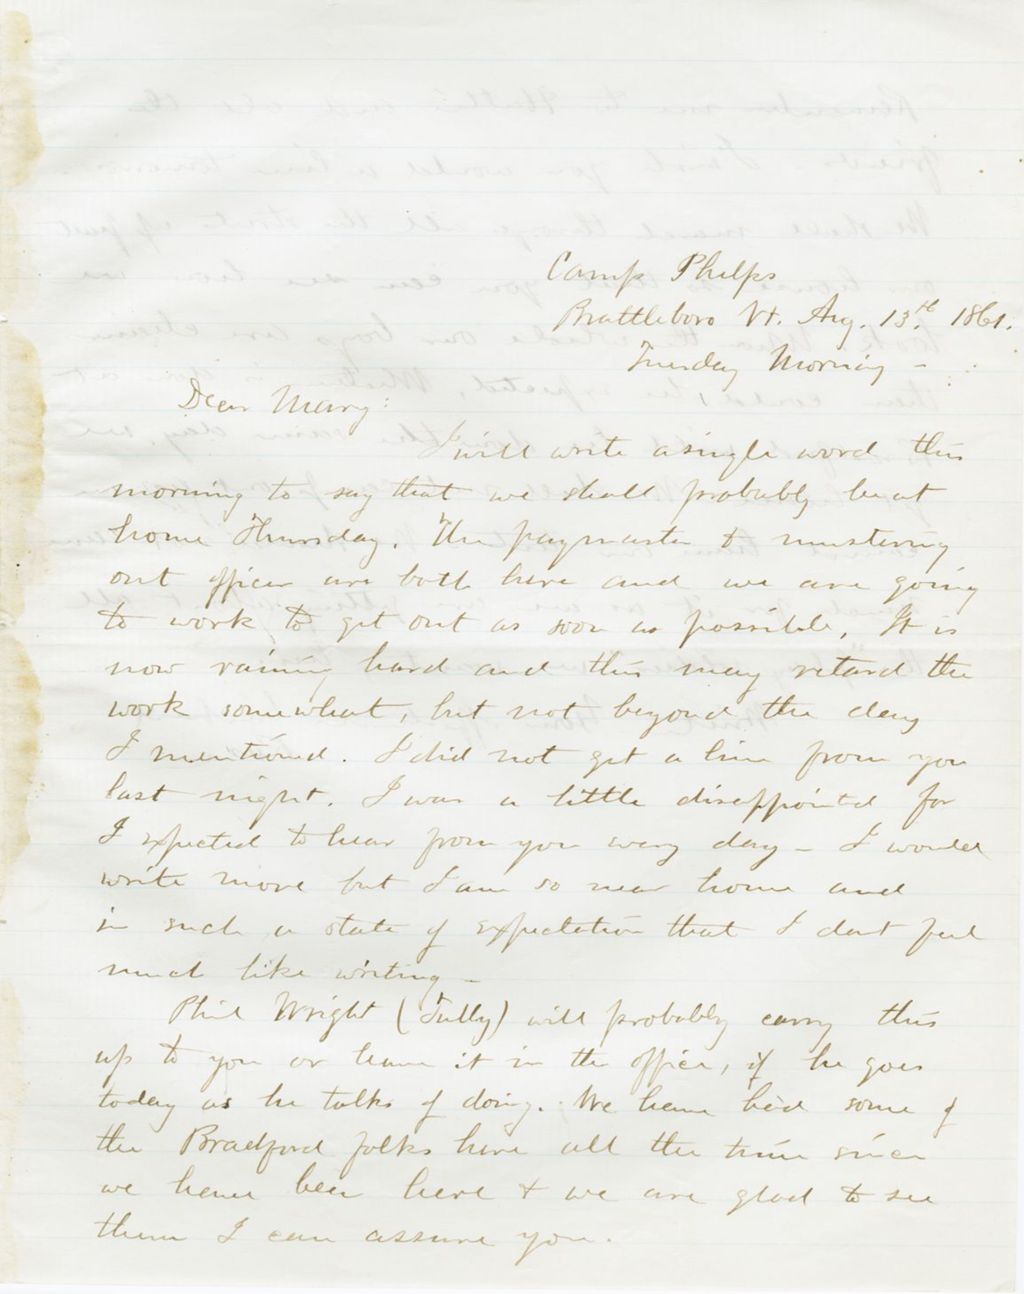 Camp Phelps
Brattleboro Vt. Aug. 13th 1861.
Tuesday Morning -
Dear Mary:
I will write a single word this
morning to say that we shall probably be at
home Thursday. The paymaster & mustering
out officer are both here and we are going
to work to get out as soon as possible. It is
now raining hard and this may retard the
work somewhat, but not beyond the day
I mentioned. I did not get a line from you
last night. I was a little disappointed for
I expected to hear from you every day - I would
write more but I am so near home and
in such a state of expectation that I dont feel
much like writing -
Phil Wright (Tully) will probably carry this
up to you or leave it in the office, if he goes
today as he talks of doing. We have had some of
the Bradford folks here all the time since
we have been here & we are glad to see
them I can assure you.